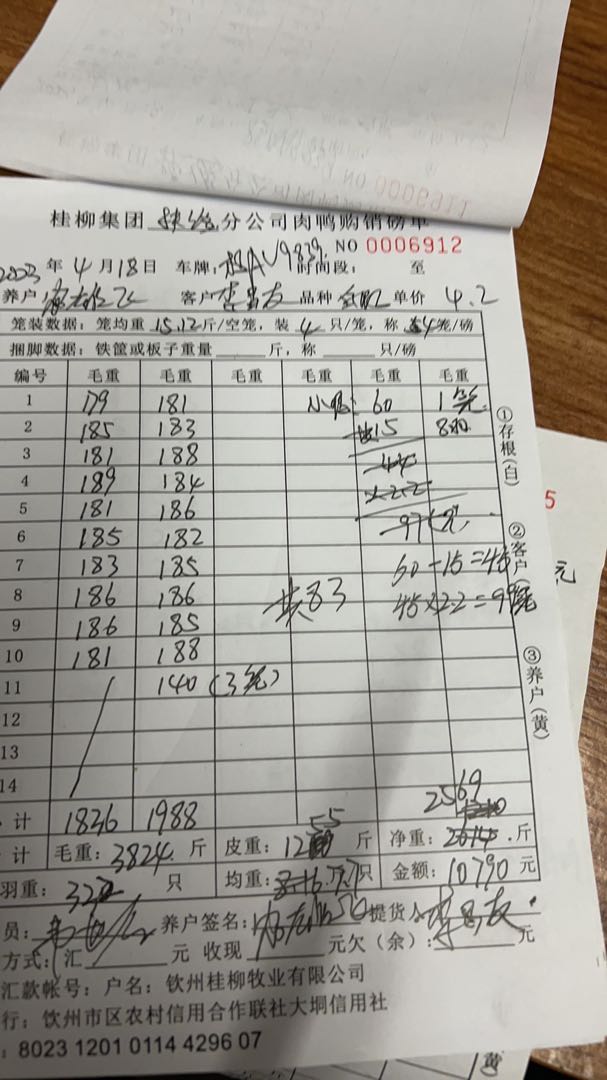 0006911
桂柳集团 分公司肉鸭购销磅单
NO 0006912
2023 年 4 月 18 日 车牌: 时间段: 至
养户: 客户 品种 单价 4.2
笼装数据: 笼均重 15.12 斤/空笼, 装 4 只/笼, 称 4 笼/磅
捆脚数据: 铁筐或板子重量 斤, 称 只/磅
编号 毛重 毛重 毛重 毛重 毛重 毛重
1 179 181 小鸭: 60 1笼
2 185 183 15 8只
3 181 188
4 189 184
5 181 186
6 185 182
7 183 185 60-15=45
8 186 186 共83 45×2.2=99元
9 186 185
10 181 188
11 140 (3笼)
12
13
14
计 1836 1988 2569
计 毛重: 3824 斤 皮重: 1255 斤 净重: 斤
羽重: 只 均重: 只 金额: 10790 元
员: 养户签名: 提货人
方式: 汇 元 收现 元欠(余): 元
汇款帐号: 户名: 钦州桂柳牧业有限公司
行: 钦州市区农村信用合作联社大垌信用社
: 8023 1201 0114 4296 07
①存根(白)
②客户(
③养户(黄)
5
元
黄